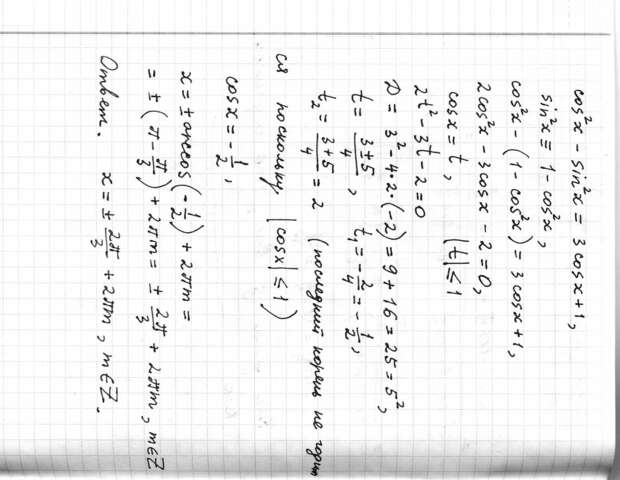 cos²x - sin²x = 3 cosx + 1,
sin²x ≡ 1 - cos²x,
cos²x - (1 - cos²x) = 3 cosx + 1,
2cos²x - 3cosx - 2 = 0,
cosx = t, |t| ≤ 1
2t² - 3t - 2 = 0
D = 3² - 4·2·(-2) = 9 + 16 = 25 = 5²,
t = (3±5)/4, t₁ = -2/4 = -1/2,
t₂ = (3+5)/4 = 2 (последний корень не годит
ся поскольку |cosx| ≤ 1)
cosx = -1/2,
x = ± arccos(-1/2) + 2πm =
= ± (π - π/3) + 2πm = ± 2π/3 + 2πm, m∈Z
Ответ. x = ± 2π/3 + 2πm, m∈Z.